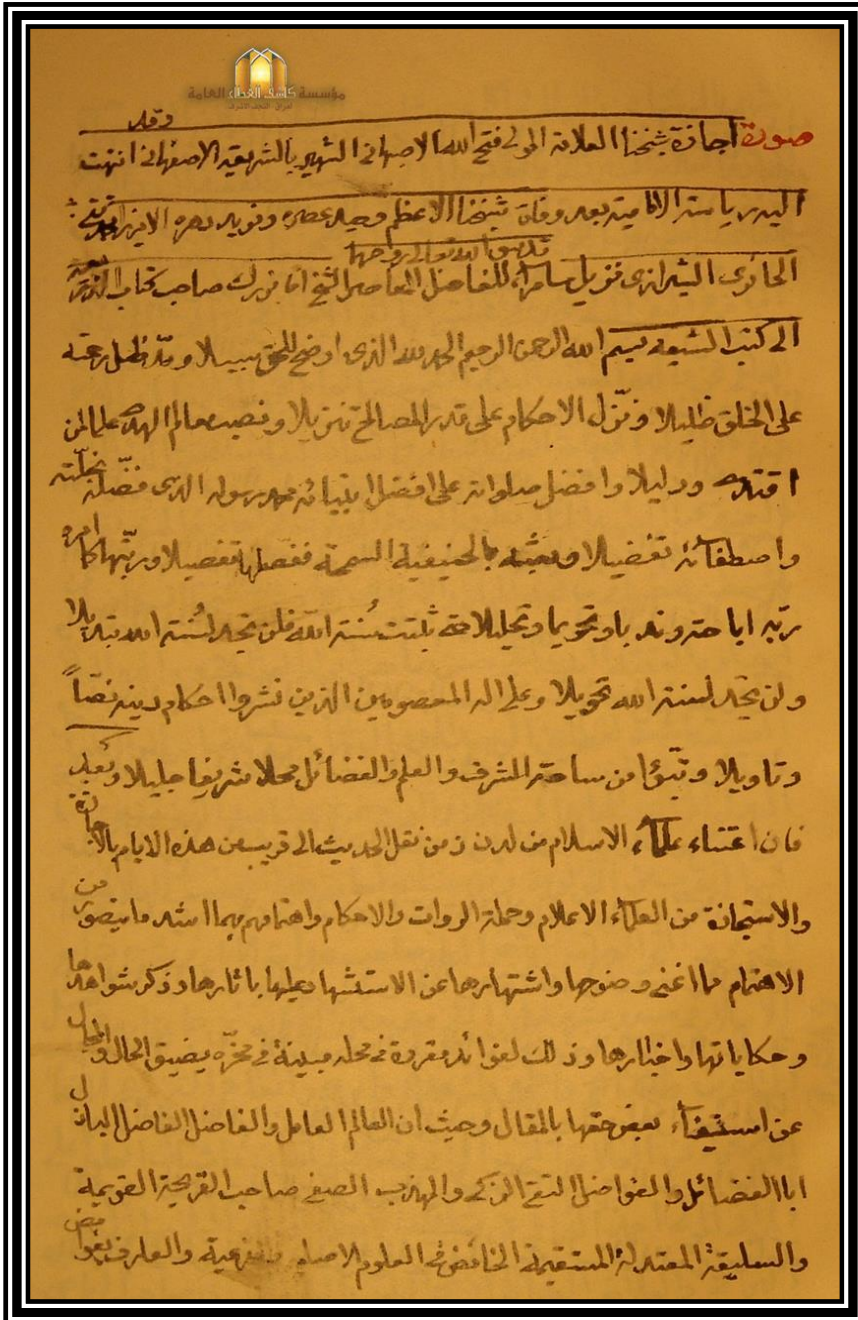 مؤسسة كاشف الغطاء العامة
العراق - النجف الاشرف
صورة اجازة شيخنا العلامة المولى فتح الله الاصبهانى الشهير بالشريعة الاصفهانى وقد انتهت
اليه رياسة الامامية بعد وفات شيخنا الاعظم وحيد عصره وفريد دهره الاميرزا محمد تقى
الحائرى الشيرازى نزيل سامراء قدس الله تعالى روحهما للفاضل المعاصر الشيخ اقا بزرك صاحب كتاب الذريعة
الى كتب الشيعة بسم الله الرحمن الرحيم الحمد لله الذى اوضح للحق سبيلا ومدّ ظل رحمته
على الخلق ظليلا ونزّل الاحكام على قدر المصالح تنزيلا ونصب معالم الهدى علما لمن
اقتدى ودليلا وافضل صلواته على افضل انبيائه محمد رسوله الذى فضّله بخلّته
واصطفائه تفضيلا وبعثه بالحنيفية السمحة ففصلها تفصيلا وربّبها كما امره
ربّه اباحة وندبا وتحريما وتحليلا حتى ثبتت سُنة الله فلن تجد لسُنة الله تبديلا
ولن تجد لسنة الله تحويلا وعلى اله المعصومين الذين نشروا احكام دينه نصّاً
وتاويلا وتبوّؤا من ساحة الشرف والعلم والفضائل محلا شريفا جليلا وبُعد
فان اعتناء علماء الاسلام من لدن زمن نقل الحديث الى قريب من هذه الايام بالاجازة
والاستجازة من العلماء الاعلام وحملة الروات والاحكام واهتمامهم بهما اشد ما يتصور من
الاهتمام مما اغنى وضوحها واشتهارها عن الاستشهاد عليها باثارها وذكر شواهدها
وحكاياتها واخبارها وذلك لفوائد مقررة فى محله مبينة فى مقرّه يضيق الحال والمجال
عن استيفاء بعض حقها بالمقال وحيث ان العالم العامل والفاضل الفاضل الباذل
ابا الفضائل والفواضل التقى الزكى والمهذب الصفى صاحب القريحة القويمة
والسليقة المعتدلة المستقيمة الخائض فى العلوم الاصلية والفرعية والعارف بغوامض